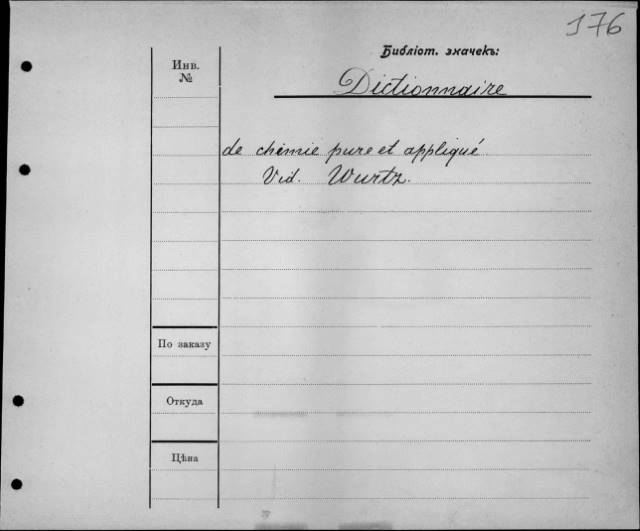 176
Библіот. значекъ:
Инв.
№
Dictionnaire
de chimie pure et appliqué
Vid. Wurtz.
По заказу
Откуда
Цѣна